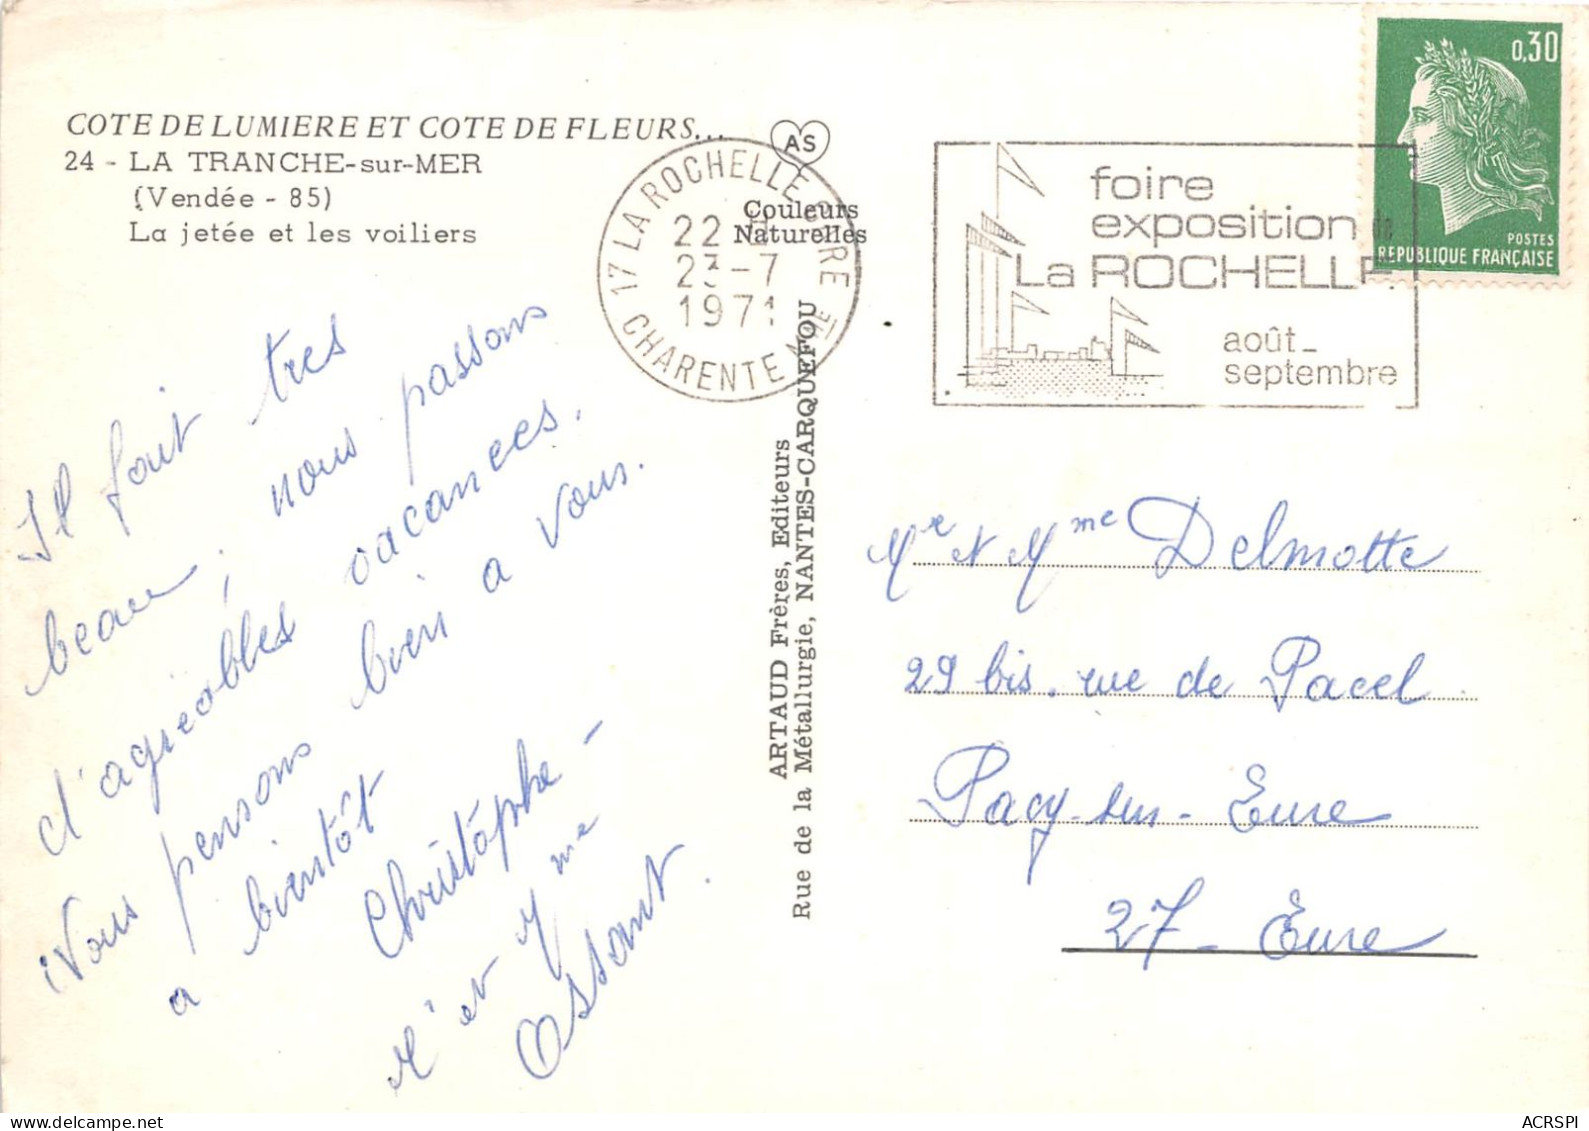 COTE DE LUMIERE ET COTE DE FLEURS...
24 - LA TRANCHE-sur-MER
(Vendée - 85)
La jetée et les voiliers
AS
Couleurs
Naturelles
17 LA ROCHELLE GARE
22 H
23-7
1971
CHARENTE MME
foire
exposition de
La ROCHELLE
août_
septembre
0,30
POSTES
REPUBLIQUE FRANÇAISE
Il fait tres
beau, nous passons
d'agréables vacances.
Nous pensons bien a vous.
a bientôt
Christophe -
M' et Mme
Ossant.
ARTAUD Frères, Editeurs
Rue de la Métallurgie, NANTES-CARQUEFOU
Mr et Mme Delmotte
29 bis. rue de Pacel
Pacy-sur-Eure
27 - Eure
ACRSPI